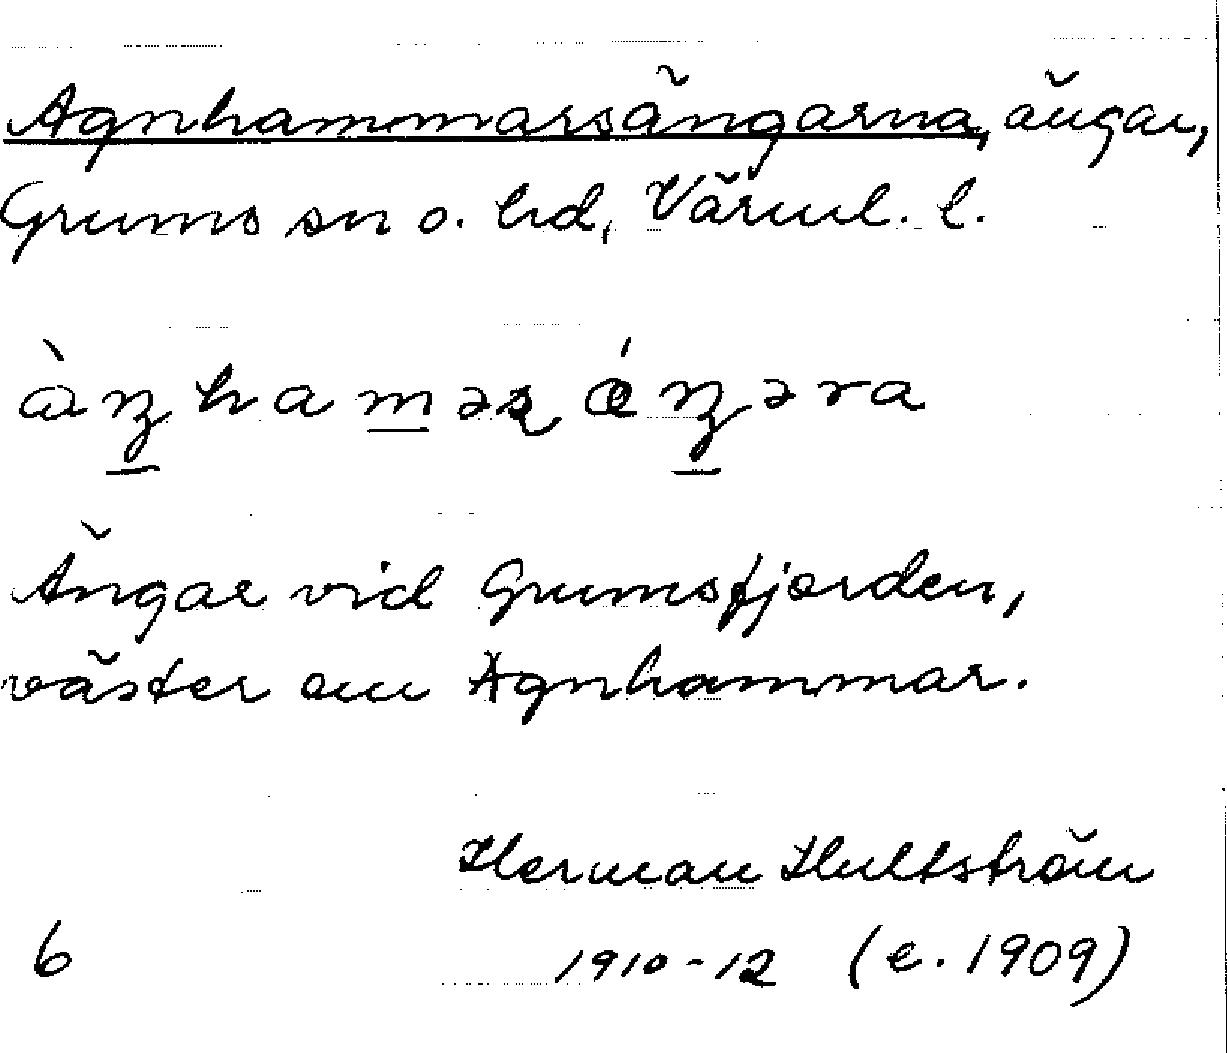 Agnhammarsängarna, ängar,
Grums sn o. hd, Värml. l.
Ängar vid Grumsfjorden,
väster om Agnhammar.
Herman Hultström
6 1910-12 (e. 1909)